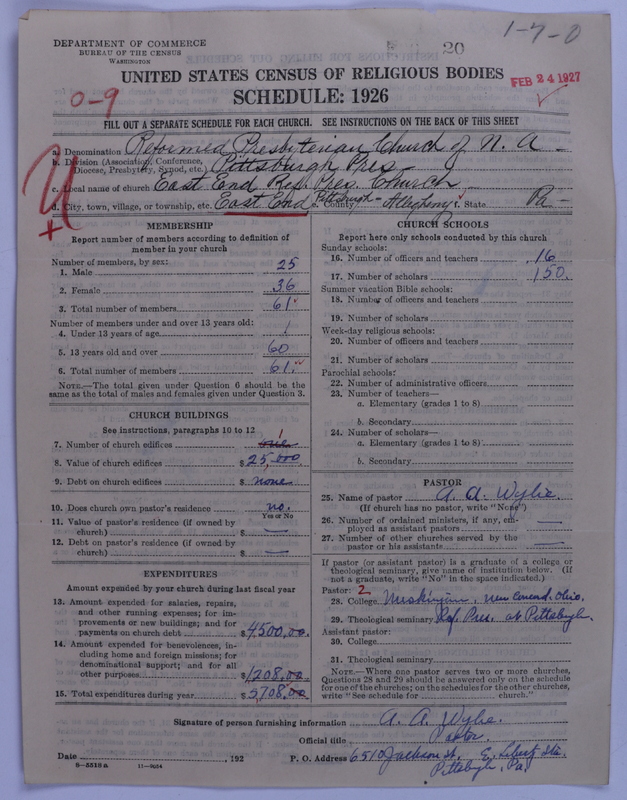 1-7-0
20
DEPARTMENT OF COMMERCE
BUREAU OF THE CENSUS
WASHINGTON
UNITED STATES CENSUS OF RELIGIOUS BODIES
FEB 24 1927
SCHEDULE: 1926
0-9
FILL OUT A SEPARATE SCHEDULE FOR EACH CHURCH. SEE INSTRUCTIONS ON THE BACK OF THIS SHEET
a. Denomination Reformed Presbyterian Church of N. A
b. Division (Association, Conference,
Diocese, Presbytery, Synod, etc.) Pittsburgh Pres
c. Local name of church East End Ref. Pres. Church
d. City, town, village, or township, etc. East End Pittsburgh e. County Allegheny f. State Pa
U
+
MEMBERSHIP
Report number of members according to definition of
member in your church
Number of members, by sex:
1. Male 25
2. Female 36
3. Total number of members 61
Number of members under and over 13 years old:
4. Under 13 years of age 1
5. 13 years old and over 60
6. Total number of members 61
NOTE.—The total given under Question 6 should be the
same as the total of males and females given under Question 3.
CHURCH BUILDINGS
See instructions, paragraphs 10 to 12
7. Number of church edifices one 1
8. Value of church edifices $25,000
9. Debt on church edifices $ none
10. Does church own pastor's residence no.
Yes or No
11. Value of pastor's residence (if owned by
church) $ —
12. Debt on pastor's residence (if owned by
church) $ —
EXPENDITURES
Amount expended by your church during last fiscal year
13. Amount expended for salaries, repairs,
and other running expenses; for im-
provements or new buildings; and for
payments on church debt $4500,00.
14. Amount expended for benevolences, in-
cluding home and foreign missions; for
denominational support; and for all
other purposes $1208,00
15. Total expenditures during year $5708,00
CHURCH SCHOOLS
Report here only schools conducted by this church
Sunday schools:
16. Number of officers and teachers 16
17. Number of scholars 150.
Summer vacation Bible schools:
18. Number of officers and teachers
19. Number of scholars
Week-day religious schools:
20. Number of officers and teachers
21. Number of scholars
Parochial schools:
22. Number of administrative officers
23. Number of teachers—
a. Elementary (grades 1 to 8)
b. Secondary
24. Number of scholars—
a. Elementary (grades 1 to 8)
b. Secondary
PASTOR
25. Name of pastor A. A. Wylie.
(If church has no pastor, write "None")
26. Number of ordained ministers, if any, em-
ployed as assistant pastors —
27. Number of other churches served by the
pastor or his assistants —
If pastor (or assistant pastor) is a graduate of a college or
theological seminary, give name of institution below. (If
not a graduate, write "No" in the space indicated.)
Pastor: 2
28. College Muskingum, New Concord. Ohio.
29. Theological seminary Ref. Pres. at Pittsburgh.
Assistant pastor:
30. College
31. Theological seminary
NOTE.—Where one pastor serves two or more churches,
Questions 28 and 29 should be answered only on the schedule
for one of the churches; on the schedules for the other churches,
write "See schedule for church."
Signature of person furnishing information A. A. Wylie.
Official title Pastor.
Date , 192 P. O. Address 6510 Jackson St. E. Liberty Sta.
Pittsburgh, Pa.
8—5518 a 11—9054